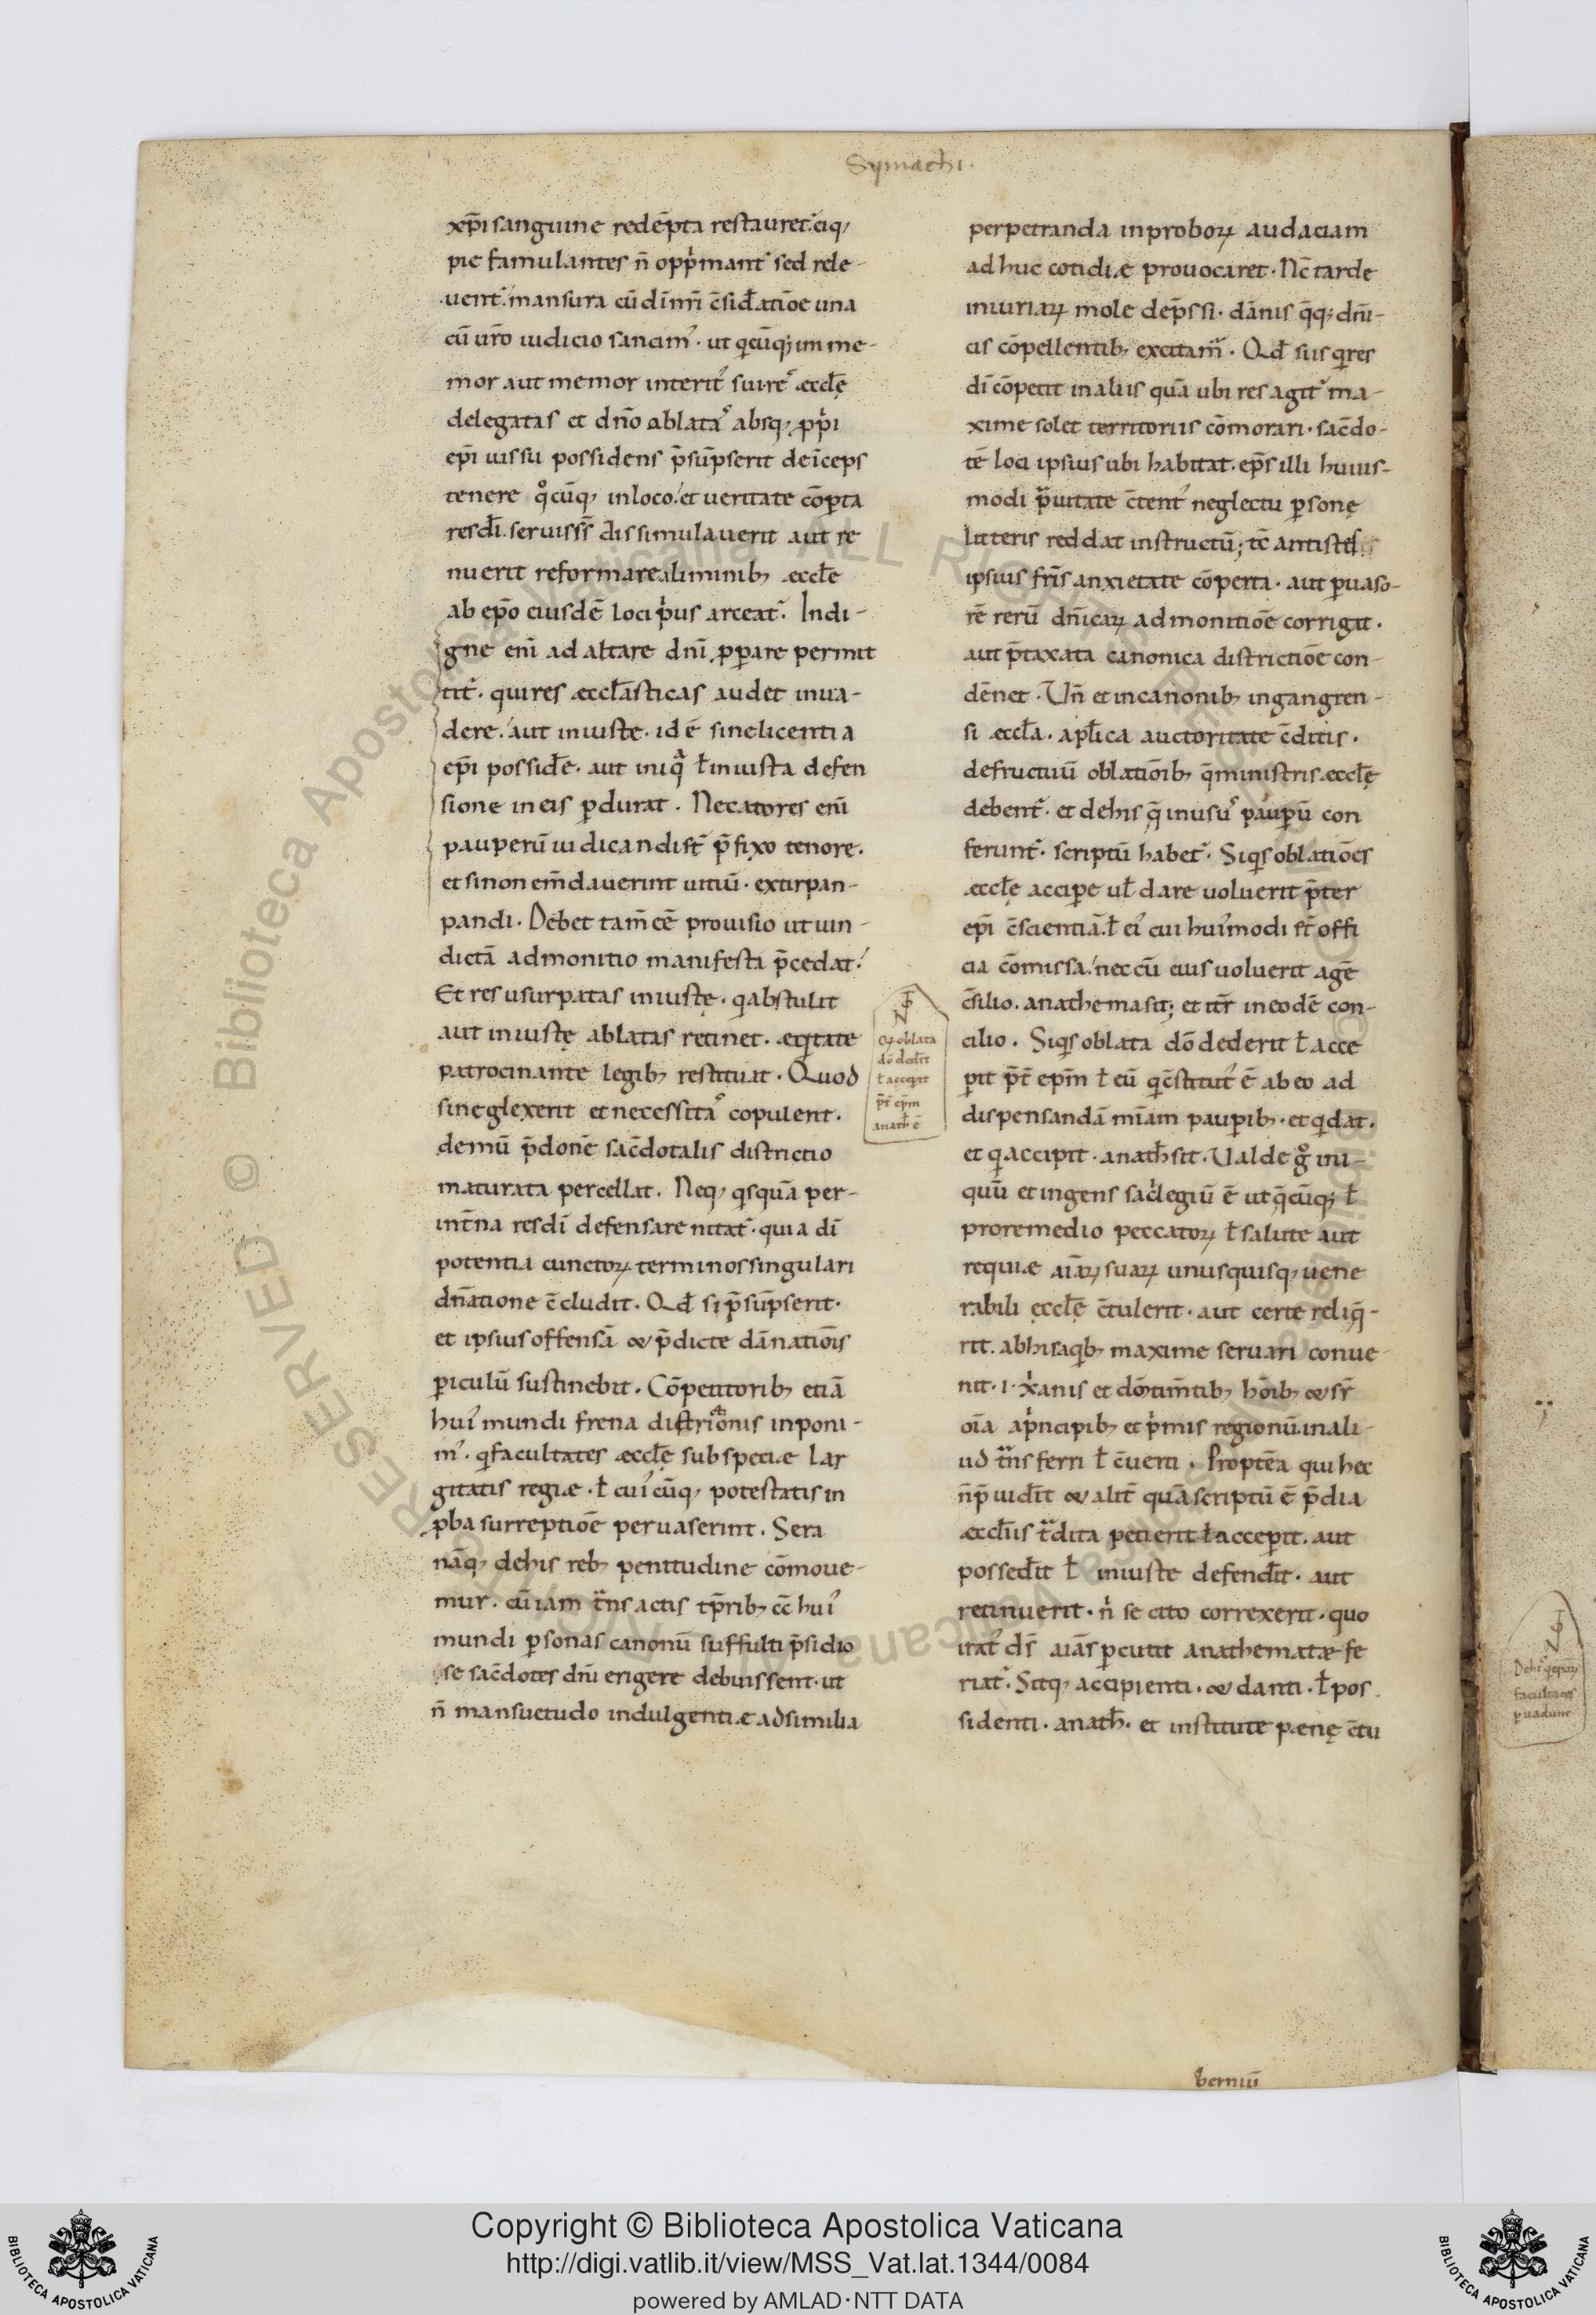 Symachi.
xp̄i sanguine redēpta restauret. eiq,
pie famulantes n̄ opp̍mant᷒ sed rele-
uent. mansura cū dīm̄ c̄sid̄atiōe una
cū ur̄o iudicio sancim᷒. ut q̍cūq; imme-
mor aut memor interit᷒ sui re᷒ æccl̄ę
delegatas et dn̄o ablata᷒ absq, ꝓp̍i
ep̄i iussu possidens p̄sūpserit deīceps
tenere q̊cūq, in loco. et ueritate cōꝑta
res dī. seruisss̄ dissimulauerit aut re
nuerit reformare a liminib, æccl̄e
ab ep̄o eiusdē loci p̍us arceat᷒. Indi-
gne eni̅ ad altare dn̄i ꝓꝑare permit
tit᷒. qui res æccl̄asticas audet inua-
dere. aut iniuste. id ē sine licentia
ep̄i possid̄e. aut iniqͣ ł iniusta defen
sione in eis ꝑdurat. Necatores eni̅
pauperū iudicandi st̄ p̄fixo tenore.
et si non em̄dauerint uitiū. extirpan-
pandi. Debet tam̄ cē prouisio ut uin-
dictā admonitio manifesti p̄cedat.
Et res usurpatas iniustę. q̍ abstulit
aut iniustę ablatas retinet. æq̍tate
patrocinante legib, restituat. Quod
si neglexerit et necessita᷒ copulerit.
demū p̄donē sac̄dotalis districtio
maturata percellat. Neq, q̍squā per-
int̄na res dī defensare nitat᷒. quia dī
potentia cunctoꝝ terminos singulari
dn̄atione c̄cludit. Qd̄ si p̄sūpserit.
et ipsius offensā & p̄dicte dānatiōis
ꝑiculū sustinebit. Cōpetitorib, etiā
hui᷒ mundi frena districtiōnis inponi-
m᷒. q̍ facultates æccl̄ę sub speciæ lar
gitatis regiæ. ł cui᷒cūq, potestatis in
ꝓba surreptiōe peruaserint. Sera
nāq, de his reb, penitudine cōmoue-
mur. cū iam tͣnsactis tp̄rib, cc̄ hui᷒
mundi ꝑsonas canonū suffulti p̄sidio
se sac̄dotes dn̄i erigere debuissent. ut
n̄ mansuetudo indulgentiæ ad similia
Qꝝ oblata
dō ded̄it
ł acceꝑit
p̄t̄ ep̄m
anath̄ ē
perpetranda inproboꝝ audaciam
adhuc cotidiæ prouocaret. Nc̄ tarde
iniuriaꝝ mole dep̄ssi. dānis q̄q; dn̄i-
cis cōpellentib, excitam᷒. Qd̄ suis q̍ res
dī cōpetit in aliis quā ubi res agit᷒ ma-
xime solet territoriis cōmorari. sac̄do-
tē loci ipsius ubi habitat. ep̄s illi huius-
modi pͣuitate c̄tent᷒ neglectu ꝑsonę
litteris reddat instructū; tc̄ antistes
ipsius fr̄is anxietate cōperta. aut ꝑuaso-
rē rerū dn̄icaꝝ admonitiōe corrigit.
aut p̄taxata canonica districtiōe con-
dēnet. Un̄ et in canonib, in gangren-
si æccl̄a. apl̄ica auctoritate c̄ditis.
de fructuū oblatiōib, q̄ ministris æccl̄ę
debent᷒. et de his q̄ in usu᷒ pauꝑū con
ferunt᷒. scriptū habet᷒. Siq̍s oblatiōes
æccl̄ę acciꝑe ul̄ dare uoluerit p̄ter
ep̄i c̄scientiā. ł ei᷒ cui hui᷒modi st̄ offi
cia cōmissa. nec cū eius uoluerit agē
c̄silio. anathema sit; et it̄r in eodē con-
cilio. Siq̍s oblata dō dederit ł acce
ꝑit p̄t̄ ep̄m ł eū q̍ c̄stitut᷒ ē ab eo ad
dispensandā mīam pauꝑib,. et q̍ dat.
et q̍ accipit. anath̄ sit. Ualde g̊ ini-
quū et ingens sac̍legiū ē ut q̄cūq; ł
pro remedio peccatoꝝ ł salute aut
requiæ aīaꝝ suaꝝ unusquisq, uene
rabili eccl̄ę c̄tulerit. aut certe reliq̄-
rit. ab his a q̍b, maxime seruari conue
nit. i. xp̍anis et dm̄ tim̄tib, hōib, & sr̄
oīa a p̍ncipib, et p̍mis regionū. in ali-
ud tͣnsferri ł c̄uerti. Proptēa qui hec
n̄ p̄uid̄it & alit̄ quā scriptū ē p̄dia
æccl̄iis tͣdita petierit ł acceꝑit. aut
possed̄it ł iniuste defend̄it. aut
retinuerit. n̍ se cito correxerit. quo
irat᷒ ds̄ aiās ꝑcutit anathematæ fe
riat᷒. Sitq, accipienti. & danti. ł pos
sidenti. anath̄. et institute pænę c̄tu
berniū
De hi᷒ q̍ eporꝝ
facultates
ꝑuadunt
Copyright © Biblioteca Apostolica Vaticana
http://digi.vatlib.it/view/MSS_Vat.lat.1344/0084
powered by AMLAD·NTT DATA